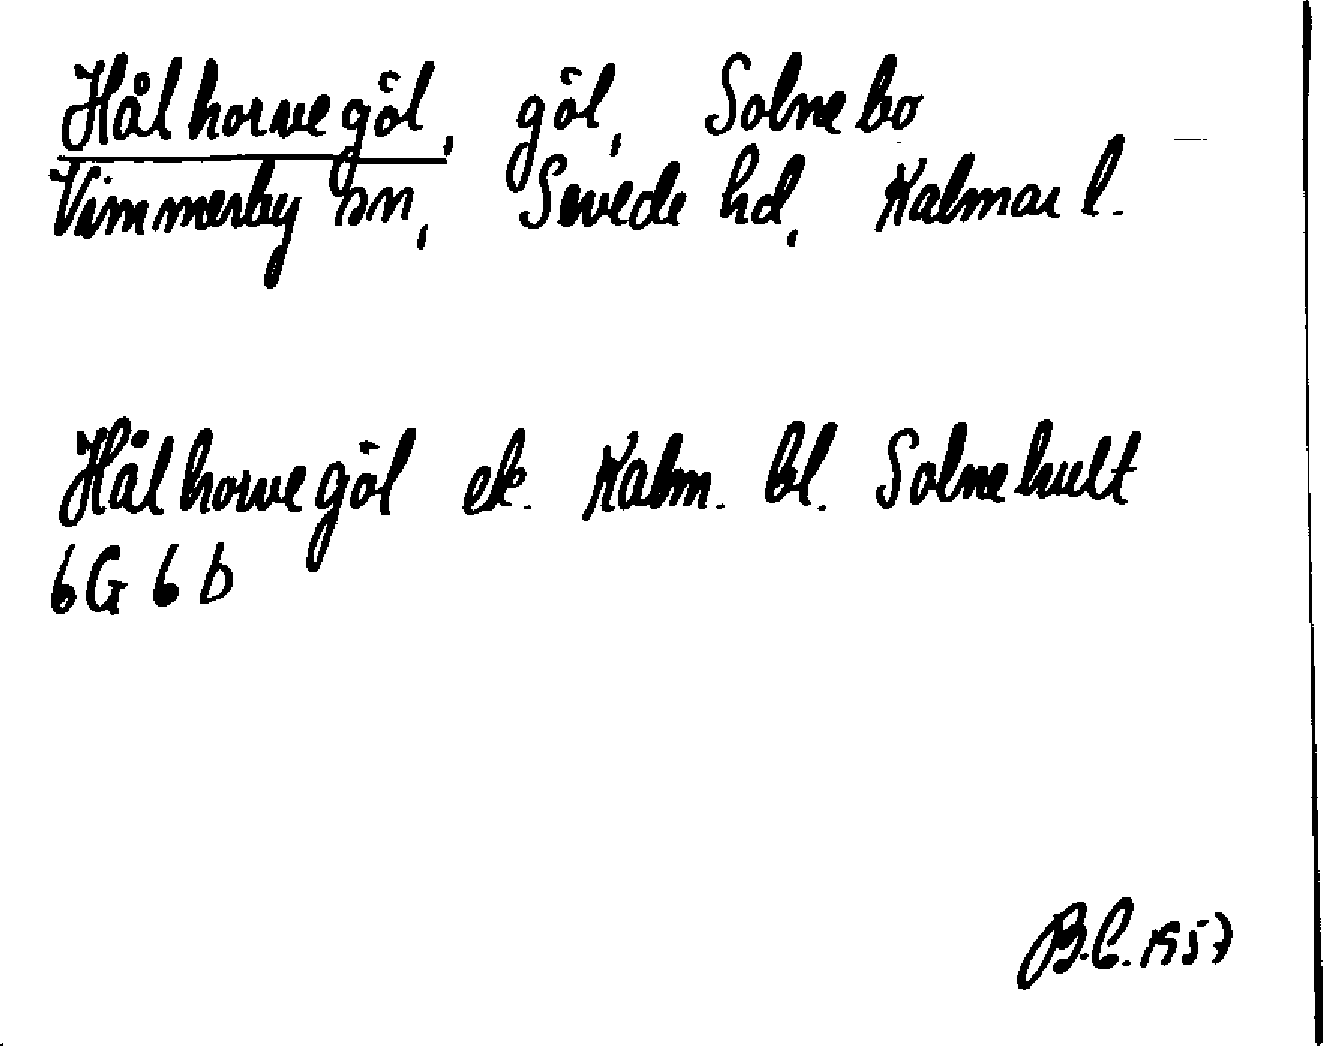 Hålhorvegöl, göl, Solnebo
Vimmerby sn, Sevede hd, Kalmar l.
Hålhorvegöl ek. Kalm. bl. Solnehult
6G 6b
B.C. 1957